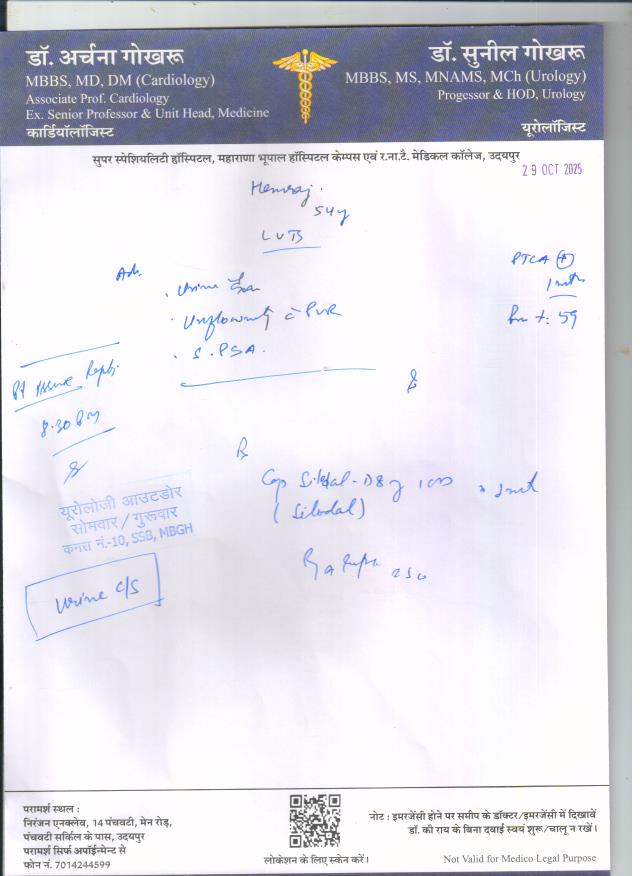 डॉ. अर्चना गोखरू
MBBS, MD, DM (Cardiology)
Associate Prof. Cardiology
Ex. Senior Professor & Unit Head, Medicine
कार्डियॉलॉजिस्ट
डॉ. सुनील गोखरू
MBBS, MS, MNAMS, MCh (Urology)
Progessor & HOD, Urology
यूरोलॉजिस्ट
सुपर स्पेशियलिटी हॉस्पिटल, महाराणा भूपाल हॉस्पिटल केम्पस एवं र.ना.टै. मेडिकल कॉलेज, उदयपुर
29 OCT 2025
Hemraj.
54y
LUTS
PTCA (+)
Adv.
. Urine
. Uroflowmetry c̄ PVR
. S. PSA.
59
8.30 PM
Rx
Cap
(Silodal)
यूरोलोजी आउटडोर
सोमवार / गुरूवार
कमरा नं.-10, SSB, MBGH
Urine C/S
250
परामर्श स्थल :
निरंजन एनक्लेव, 14 पंचवटी, मेन रोड़,
पंचवटी सर्किल के पास, उदयपुर
परामर्श सिर्फ अपॉईन्मेन्ट से
फोन नं. 7014244599
लोकेशन के लिए स्केन करें।
नोट : इमरजेंसी होने पर समीप के डॉक्टर/इमरजेंसी में दिखावें
डॉ. की राय के बिना दवाई स्वयं शुरू/चालू न रखें।
Not Valid for Medico Legal Purpose